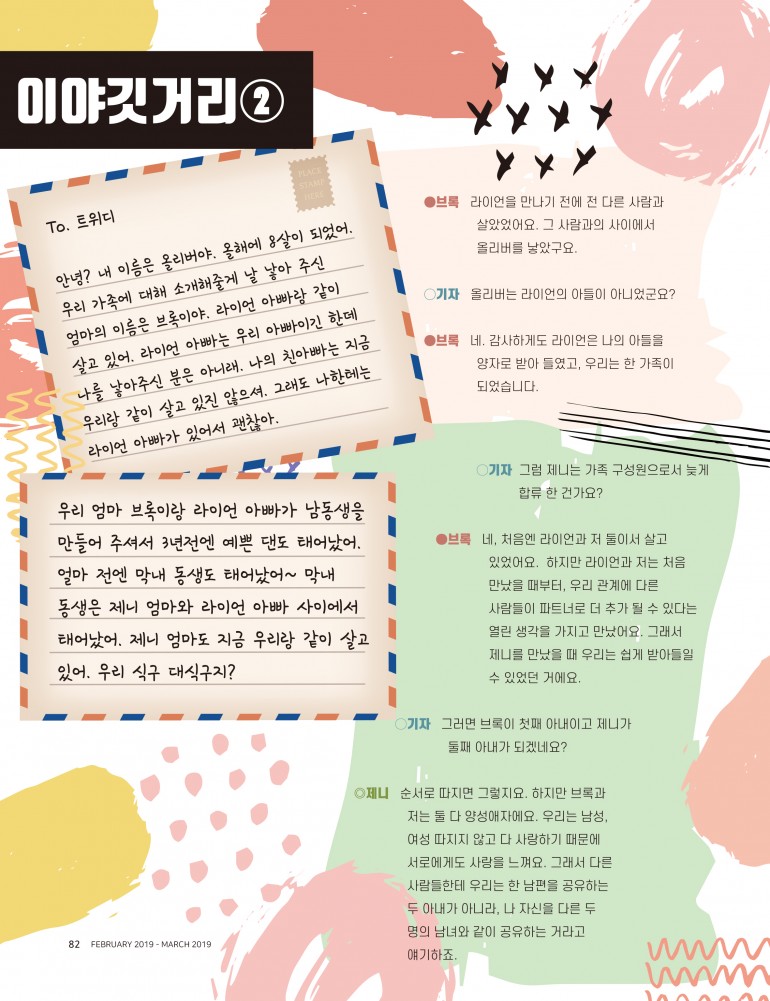 이야깃거리②
PLACE
STAMP
HERE
To. 트위디
안녕? 내 이름은 올리버야. 올해에 8살이 되었어.
우리 가족에 대해 소개해줄게 날 낳아 주신
엄마의 이름은 브록이야. 라이언 아빠랑 같이
살고 있어. 라이언 아빠는 우리 아빠이긴 한데
나를 낳아주신 분은 아니래. 나의 친아빠는 지금
우리랑 같이 살고 있진 않으셔. 그래도 나한테는
라이언 아빠가 있어서 괜찮아.
우리 엄마 브록이랑 라이언 아빠가 남동생을
만들어 주셔서 3년전엔 예쁜 댄도 태어났어.
얼마 전엔 막내 동생도 태어났어~ 막내
동생은 제니 엄마와 라이언 아빠 사이에서
태어났어. 제니 엄마도 지금 우리랑 같이 살고
있어. 우리 식구 대식구지?
●브록 라이언을 만나기 전에 전 다른 사람과
살았었어요. 그 사람과의 사이에서
올리버를 낳았구요.
○기자 올리버는 라이언의 아들이 아니었군요?
●브록 네. 감사하게도 라이언은 나의 아들을
양자로 받아 들였고, 우리는 한 가족이
되었습니다.
○기자 그럼 제니는 가족 구성원으로서 늦게
합류 한 건가요?
●브록 네, 처음엔 라이언과 저 둘이서 살고
있었어요. 하지만 라이언과 저는 처음
만났을 때부터, 우리 관계에 다른
사람들이 파트너로 더 추가 될 수 있다는
열린 생각을 가지고 만났어요. 그래서
제니를 만났을 때 우리는 쉽게 받아들일
수 있었던 거에요.
○기자 그러면 브록이 첫째 아내이고 제니가
둘째 아내가 되겠네요?
◎제니 순서로 따지면 그렇지요. 하지만 브록과
저는 둘 다 양성애자에요. 우리는 남성,
여성 따지지 않고 다 사랑하기 때문에
서로에게도 사랑을 느껴요. 그래서 다른
사람들한테 우리는 한 남편을 공유하는
두 아내가 아니라, 나 자신을 다른 두
명의 남녀와 같이 공유하는 거라고
얘기하죠.
82 FEBRUARY 2019 - MARCH 2019